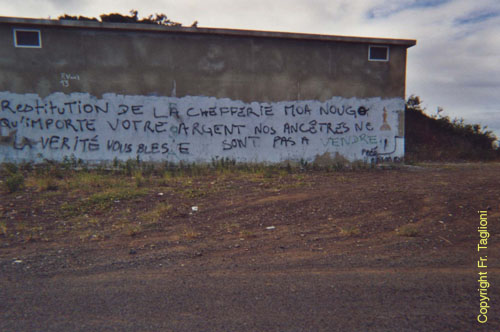 RESTITUTION DE LA CHEFFERIE MOA NOUGO
QU'IMPORTE VOTRE ARGENT NOS ANCÊTRES NE
LA VERITÉ VOUS BLESSE SONT PAS A VENDRE
Copyright Fr. Taglioni